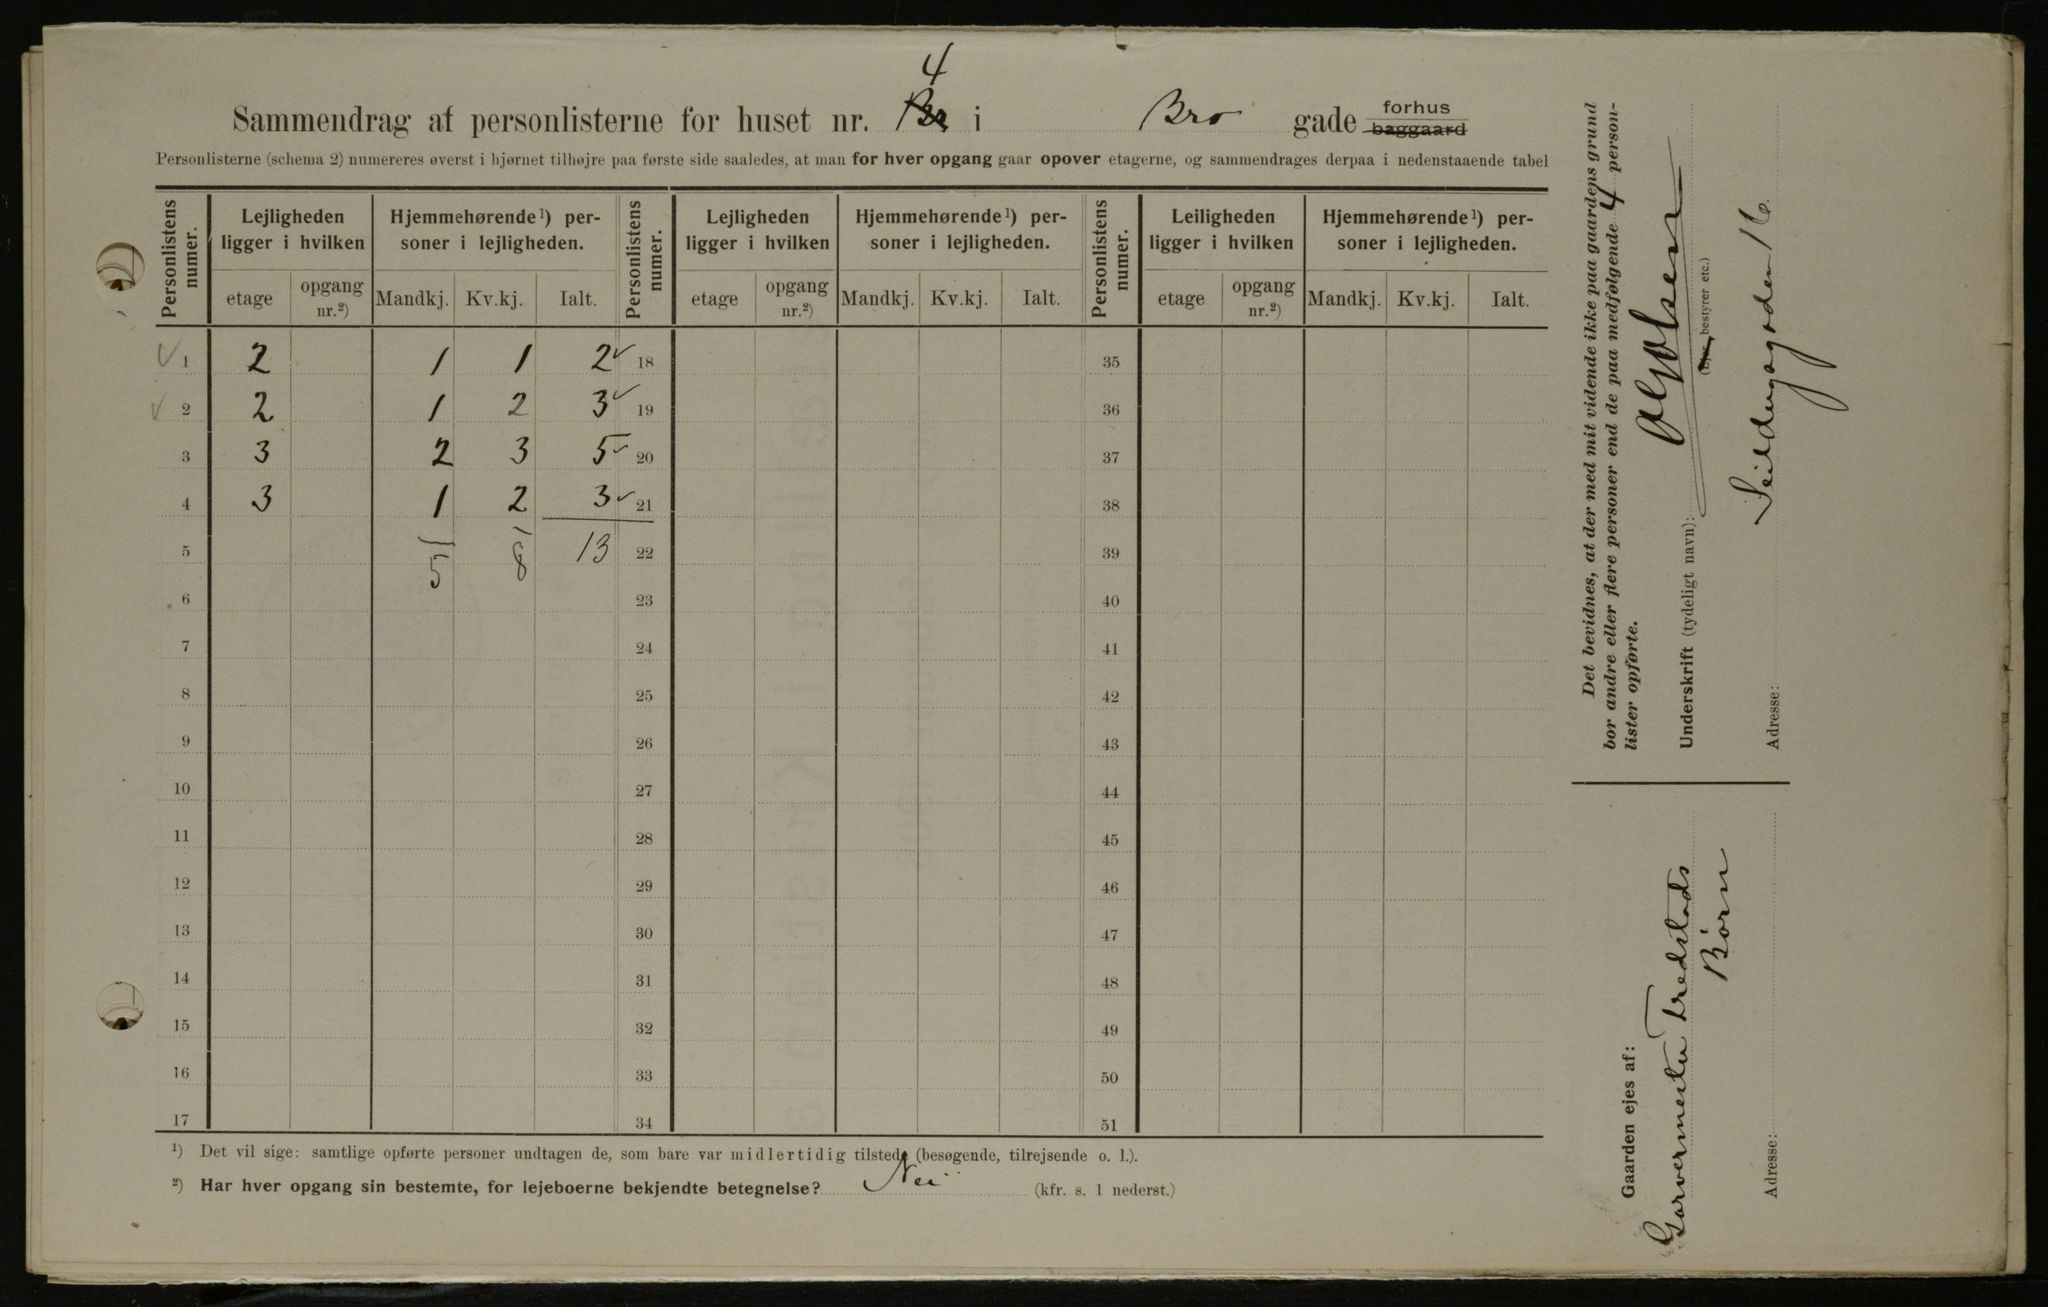 4
Sammendrag af personlisterne for huset nr. i Bro gade forhus baggaard
Personlisterne (schema 2) numereres øverst i hjørnet tilhøjre paa første side saaledes, at man for hver opgang gaar opover etagerne, og sammendrages derpaa i nedenstaaende tabel
Personlistens numer. Lejligheden ligger i hvilken Hjemmehørende¹) personer i lejligheden. Personlistens numer. Lejligheden ligger i hvilken Hjemmehørende¹) personer i lejligheden. Personlistens numer. Leiligheden ligger i hvilken Hjemmehørende¹) personer i lejligheden.
etage opgang nr.²) Mandkj. Kv.kj. Ialt. etage opgang nr.²) Mandkj. Kv.kj. Ialt. etage opgang nr.²) Mandkj. Kv.kj. Ialt.
✓ 1 2 1 1 2 ✓ 18 35
✓ 2 2 1 2 3 ✓ 19 36
3 3 2 3 5 ✓ 20 37
4 3 1 2 3 ✓ 21 38
5 5 8 13 22 39
6 23 40
7 24 41
8 25 42
9 26 43
10 27 44
11 28 45
12 29 46
13 30 47
14 31 48
15 32 49
16 33 50
17 34 51
¹) Det vil sige: samtlige opførte personer undtagen de, som bare var midlertidig tilstede (besøgende, tilrejsende o. l.).
²) Har hver opgang sin bestemte, for lejeboerne bekjendte betegnelse? Nei (kfr. s. 1 nederst.)
Det bevidnes, at der med mit vidende ikke paa gaardens grund
bor andre eller flere personer end de paa medfølgende 4 person-
lister opførte.
Underskrift (tydeligt navn): Olsen
(Ejer, bestyrer etc.)
Adresse: 16
Gaarden ejes af:
Garvermester Fredstads
Børn
Adresse: